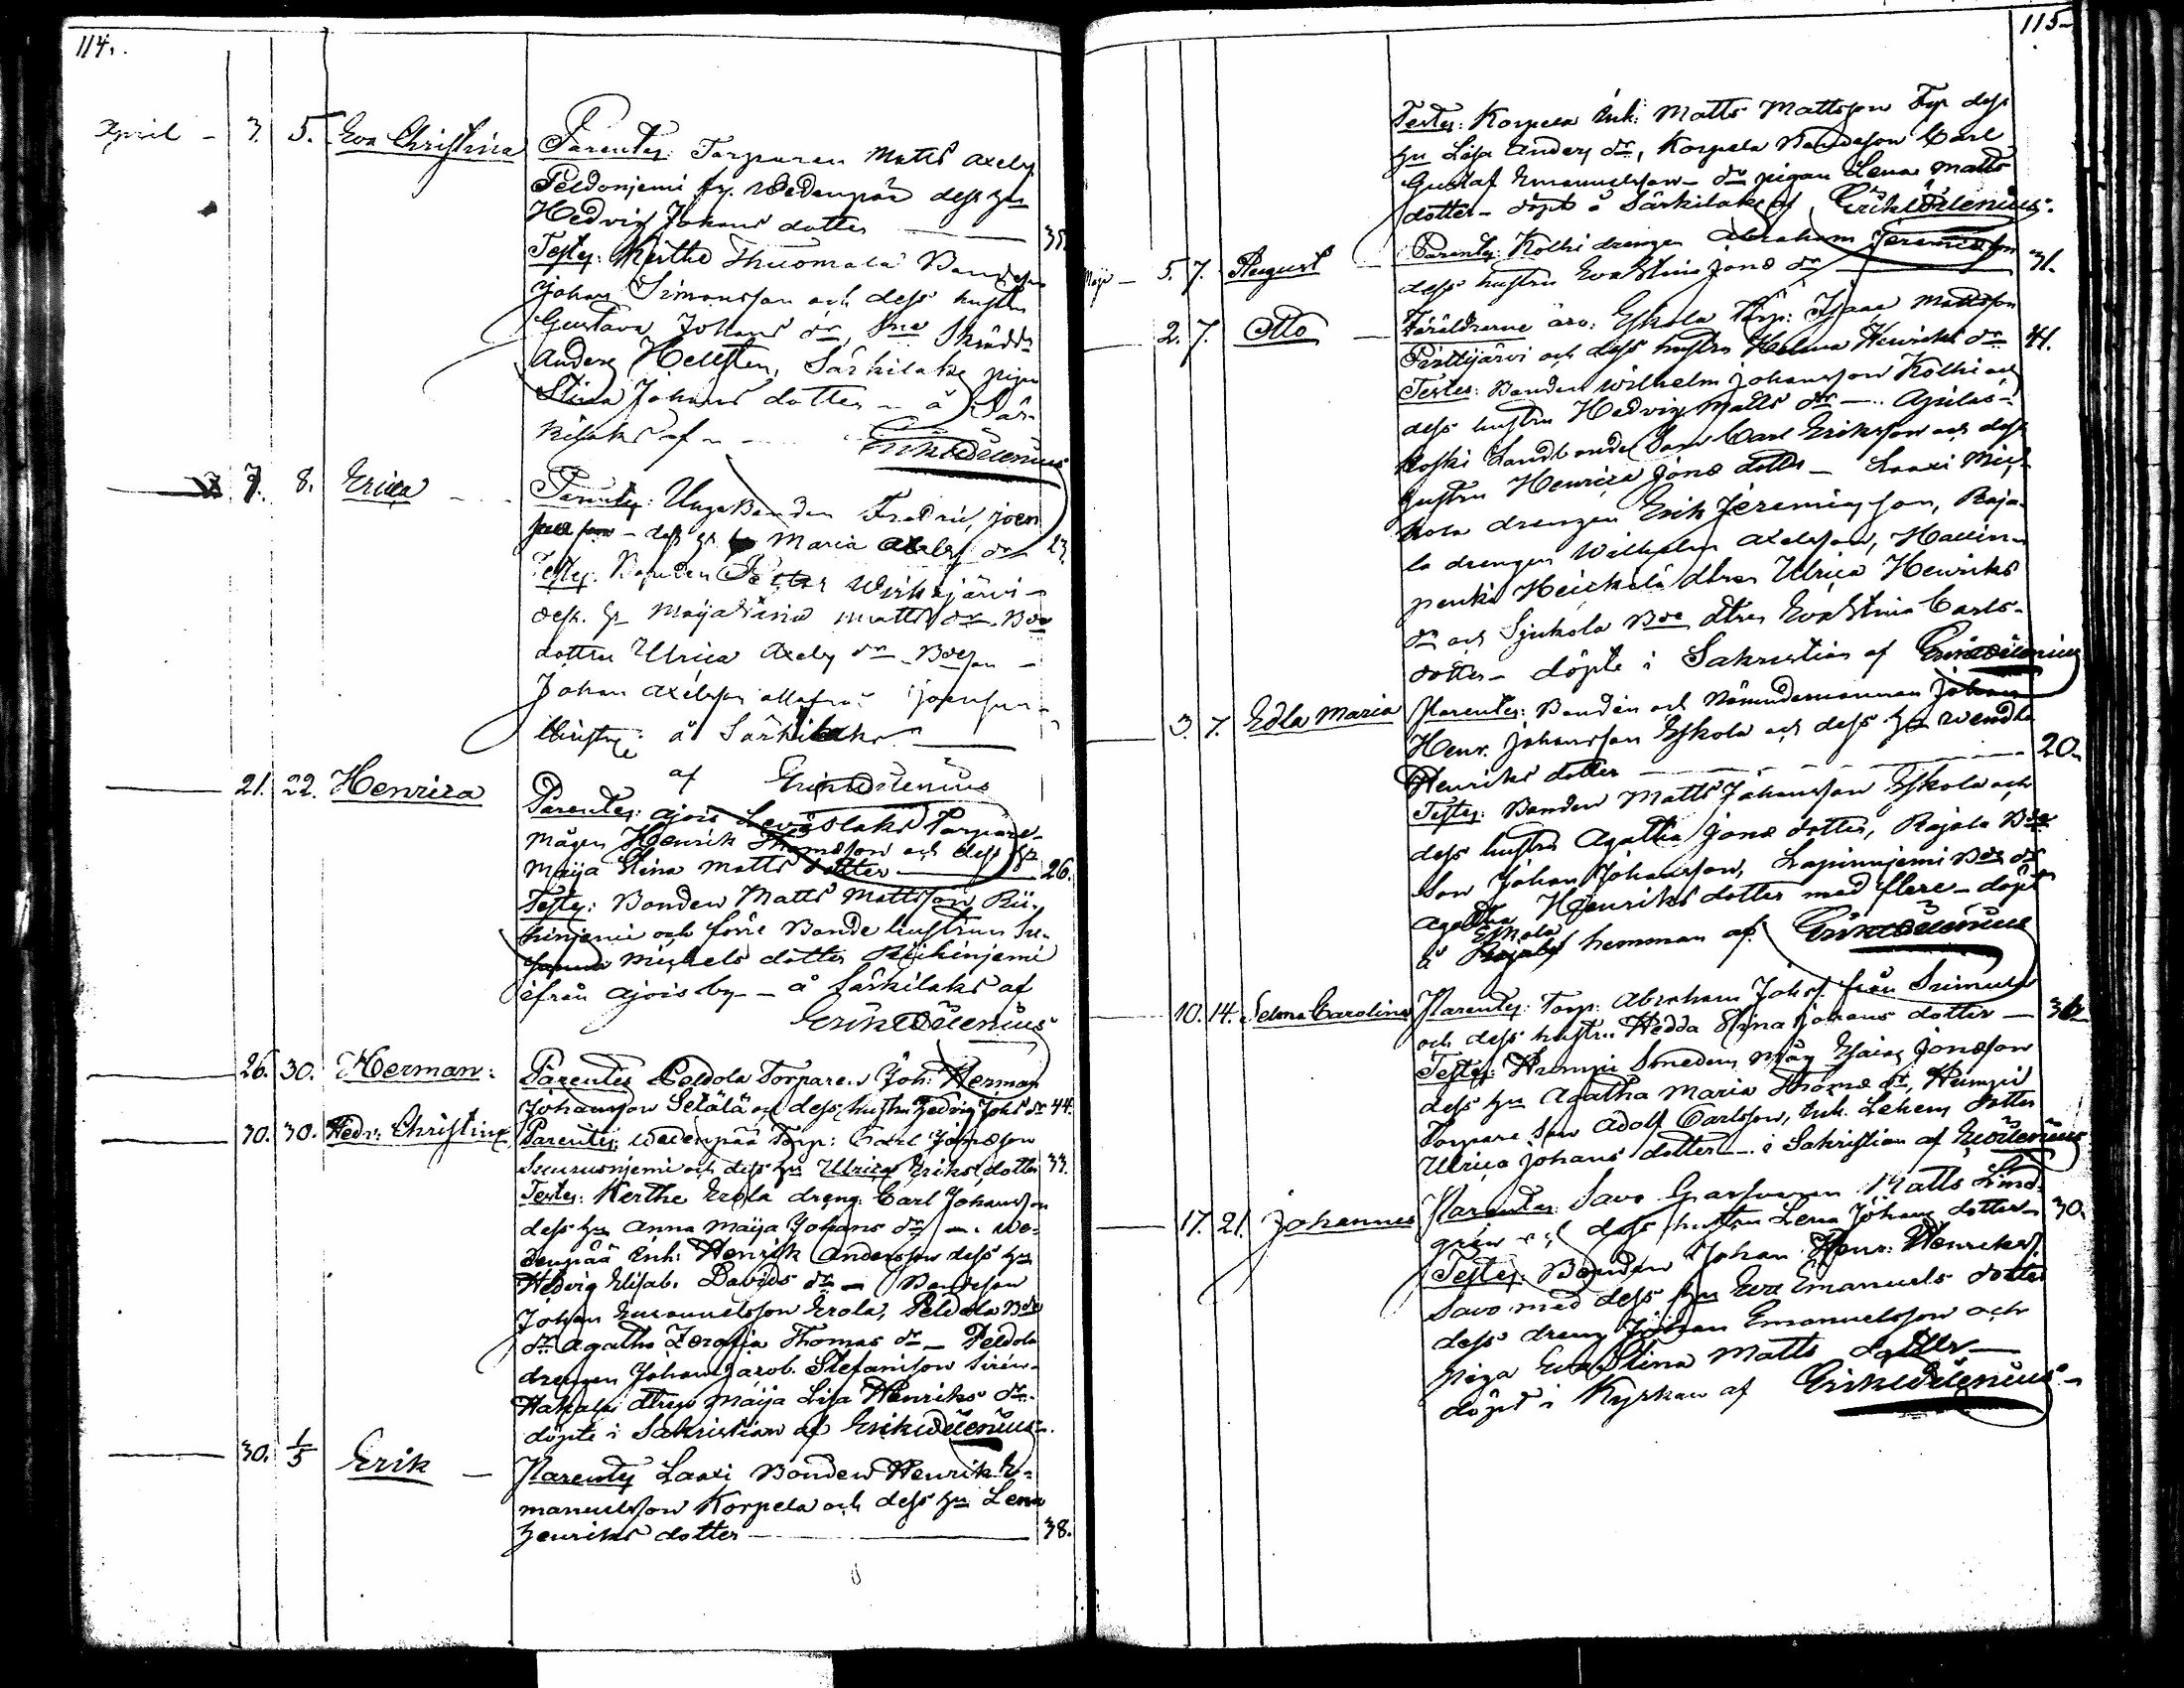 114.
April - 3. 5. Eva Christina Parentes: Torparen Matts Axels
Peldonjemi fr. Wedenpää dess hu
Hedvig Johans dotter 35.
Testes: Kerthe Thuomala Bondeson
Johan Simonsson och dess hustru
Gustava Johans dr, Skrädd.
Anders Hellsten, Särkilaks pigan
Stina Johans dotter - å Sär-
kilaks af Erik Wilenius
7. 8. Erica Parentes: Unga Bonden Fredric Joen
- dess Maria Axels dr 23.
Testes: Bonden Petter Wirkjärvi -
dess h Maija Stina Matts dr - Bde
dottren Ulrica Axels dr - Bdeson -
Johan Axelsson alla från
å Särkilaks
af Erik Wilenius
21. 22. Henrica Parentes: Ajois Leväslaks Torpare-
mågen Henrik Thomasson och dess h
Maija Stina Matts dotter 26.
Testes: Bonden Matts Mattsson Rii-
hinjemi och förre Bonde hustrun Su-
sanna Michels dotter Riihinjemi
ifrån Ajois by - å Särkilaks af
Erik Wilenius
26. 30. Herman: Parentes Peldola Torparen Joh: Herman
Johansson Setälä och dess hustru Hedvig Johs dr 44.
30. 30. Hedv: Christina Parentes: Wedenpää Torp: Carl Jonasson
Suurusnjemi och dess hu Ulrica Eriks dotter 33.
Testes: Kerthe Erola dreng: Carl Johansson
dess hu Anna Maija Johans dr - We-
denpää Inh: Henrik Andersson dess hu
Hedvig Elisab. Davids dr - Bondeson
Johan Emanuelsson Erola, Peldola Bde
dr Agatha Zerafia Thomas dr - Peldola
drengen Johan Jacob Stefanisson Sirén -
Hakala dtren Maija Lisa Henriks dr -
döpte i Sakristian af Erik Wilenius.
30. 1/5 Erik - Parentes Laxi Bonden Henrik E-
manuelsson Korpela och dess hu Lena
Henriks dotter 38.
115
Testes: Korpela Inh: Matts Mattsson Torp dess
hu Lisa Anders dr, Korpela Bondeson Carl
Gustaf Emanuelsson - pigan Lena Matts
dotter - döpt å Särkilaks af Erik Wilenius.
Maji - 5. 7. August Parentes: Kolki drengen Abraham Jeremiasson
dess hustru Eva Stina Jons dr 31.
2. 7. Otto - Föräldrarne äro: Eskola Torp: Isaac Mattsson
Pirttijärvi och dess hustru Helena Henriks dr 41.
Testes: Bonden Wilhelm Johansson Kolki och
dess hustru Hedvig Matts dr - Ajulas-
koski Landbonde Son Carl Eriksson och dess
hustru Henrica Jons dotter - Laaxi Mick-
kola drengen Erik Jeremiasson, Raja-
la drengen Wilhelm Axelsson, Hallin-
penki Heickilä dtren Ulrica Henriks
dr och Sjukola Bde dtren Eva Stina Carls-
dotter - döpte i Sakristian af Erik Wilenius
3. 7. Edla Maria Parentes: Bonden och Nämndemannen Johan
Henr. Johansson Eskola och dess hu Wendla
Henriks dotter 20.
Testes: Bonden Matts Johansson Eskola och
dess hustru Agatha Jons dotter, Rajala Bde
Son Johan Johansson, Lapinnjemi Bde dr
Agatha Henriks dotter med flere - döpt
Eskola
å Rajala hemman af Erik Wilenius
10. 14. Selma Carolina Parentes: Torp: Abraham Johs. från Srimula
och dess hustru Hedda Stina Johans dotter - 36
Testes: Humpi Smedens måg Esaias Jonasson
dess hu Agatha Maria Thoms dr, Humpi
Torpare Son Adolf Carlsson, Inh. Lehens dotter
Ulrica Johans dotter - i Sakristian af E Wilenius
17. 21. Johannes Parentes: Savo Garfvaren Matts Lind-
gren och dess hustru Lena Johans dotter 30.
Testes: Bonden Johan Henr: Henriksson
Savo med dess hu Eva Emanuels dotter
dess dreng Johan Emanuelsson och
piga Eva Stina Matts dotter -
döpt i Kyrkan af Erik Wilenius -